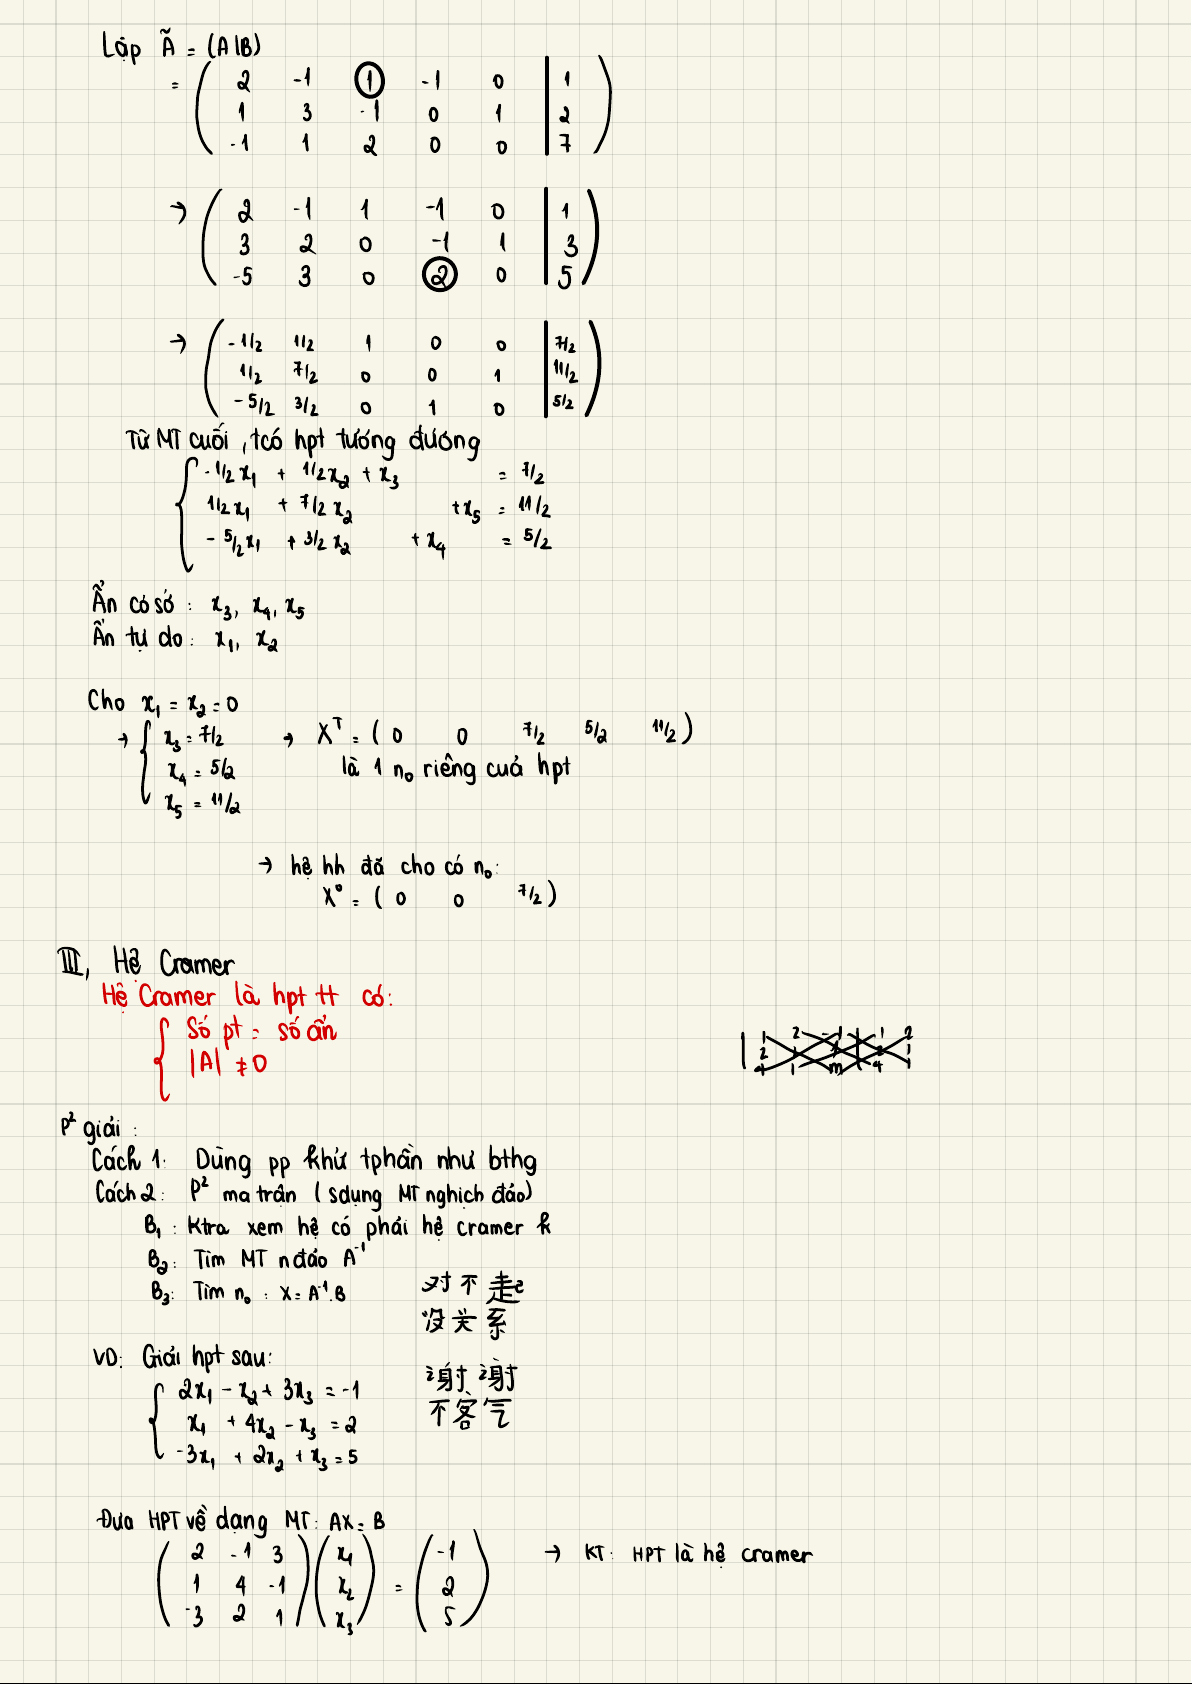 Lập Ã = (A|B)
= ( 2 -1 1 -1 0 | 1 )
1 3 -1 0 1 | 2
-1 1 2 0 0 | 7
→ ( 2 -1 1 -1 0 | 1 )
3 2 0 -1 1 | 3
-5 3 0 2 0 | 5
→ ( -1/2 1/2 1 0 0 | 7/2 )
1/2 7/2 0 0 1 | 11/2
-5/2 3/2 0 1 0 | 5/2
Từ MT cuối, tcó hpt tương đương
{ -1/2x₁ + 1/2x₂ + x₃ = 7/2
1/2x₁ + 7/2x₂ + x₅ = 11/2
- 5/2x₁ + 3/2x₂ + x₄ = 5/2
Ẩn cơ sở: x₃, x₄, x₅
Ẩn tự do: x₁, x₂
Cho x₁ = x₂ = 0
→ { x₃ = 7/2 → Xᵀ = ( 0 0 7/2 5/2 11/2 )
x₄ = 5/2 là 1 n₀ riêng cuả hpt
x₅ = 11/2
→ hệ hh đã cho có n₀:
X⁰ = ( 0 0 7/2 )
III, Hệ Cramer
Hệ Cramer là hpt tt có:
{ Số pt = số ẩn
|A| ≠ 0
P² giải:
Cách 1: Dùng pp khử tphần như bthg
Cách 2: P² ma trận ( sdụng MT nghịch đảo)
B₁: Ktra xem hệ có phải hệ cramer k
B₂: Tìm MT nđảo A⁻¹
B₃: Tìm n₀ : X = A⁻¹.B
对不起
没关系
VD: Giải hpt sau:
{ 2x₁ - x₂ + 3x₃ = -1
x₁ + 4x₂ - x₃ = 2
-3x₁ + 2x₂ + x₃ = 5
谢谢
不客气
Đưa HPT về dạng MT: AX = B
( 2 -1 3 ) ( x₁ ) = ( -1 ) → KT: HPT là hệ cramer
1 4 -1 x₂ 2
-3 2 1 x₃ 5